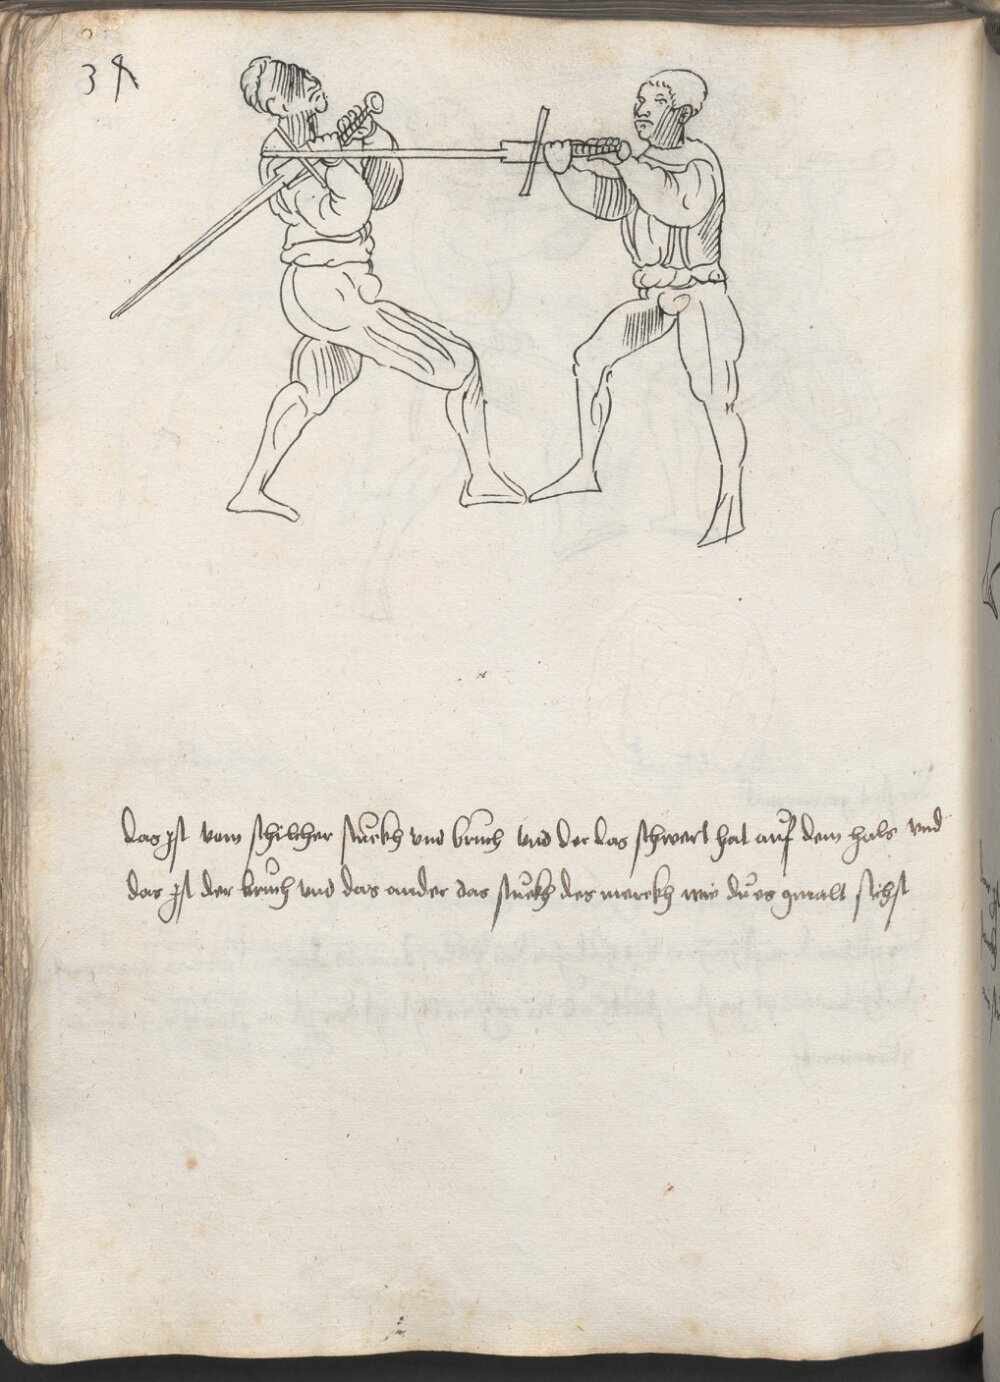 3
das ist vom schilcher stuckh vnd bruch vnd der das schwert hat auf dem hals vnd
das ist der bruch vnd das ander das stuckh des merckh wie du es gmalt sichst